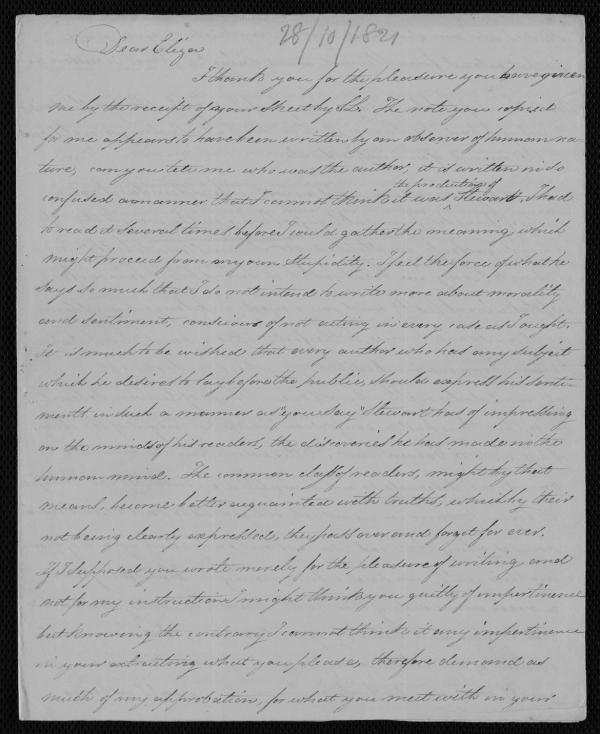 28/10/1821
Dear Eliza
I thank you for the pleasure you have given
me by the receipt of your sheet by The note you copied
for me appears to have been written by an observer of human na-
ture, can you tell me who was the author, it is written in so
the production of
confused a manner that I cannot think it was ^ Stewart. I had
to read it several times before I could gather the meaning, which
might proceed from my own stupidity. I feel the force of what he
says so much that I do not intend to write more about morality
and sentiment, conscious of not acting in every case as I ought.
It is much to be wished that every author who has any subject
which he desires to lay before the public, should express his senti-
ments in such a manner as "you say" Stewart has of impressing
on the minds of his readers, the discoveries he has made in the
human mind. The common class of readers, might by that
means, become better acquainted with truths, which by their
not being clearly expressed, they pass over and forget for ever.
If I supposed you wrote merely for the pleasure of writing, and
not for my instruction I might think you guilty of impertinence
but knowing the contrary I cannot think it any impertinence
in your extracting what you please, therefore demand as
much of my approbation, for what you meet with in your